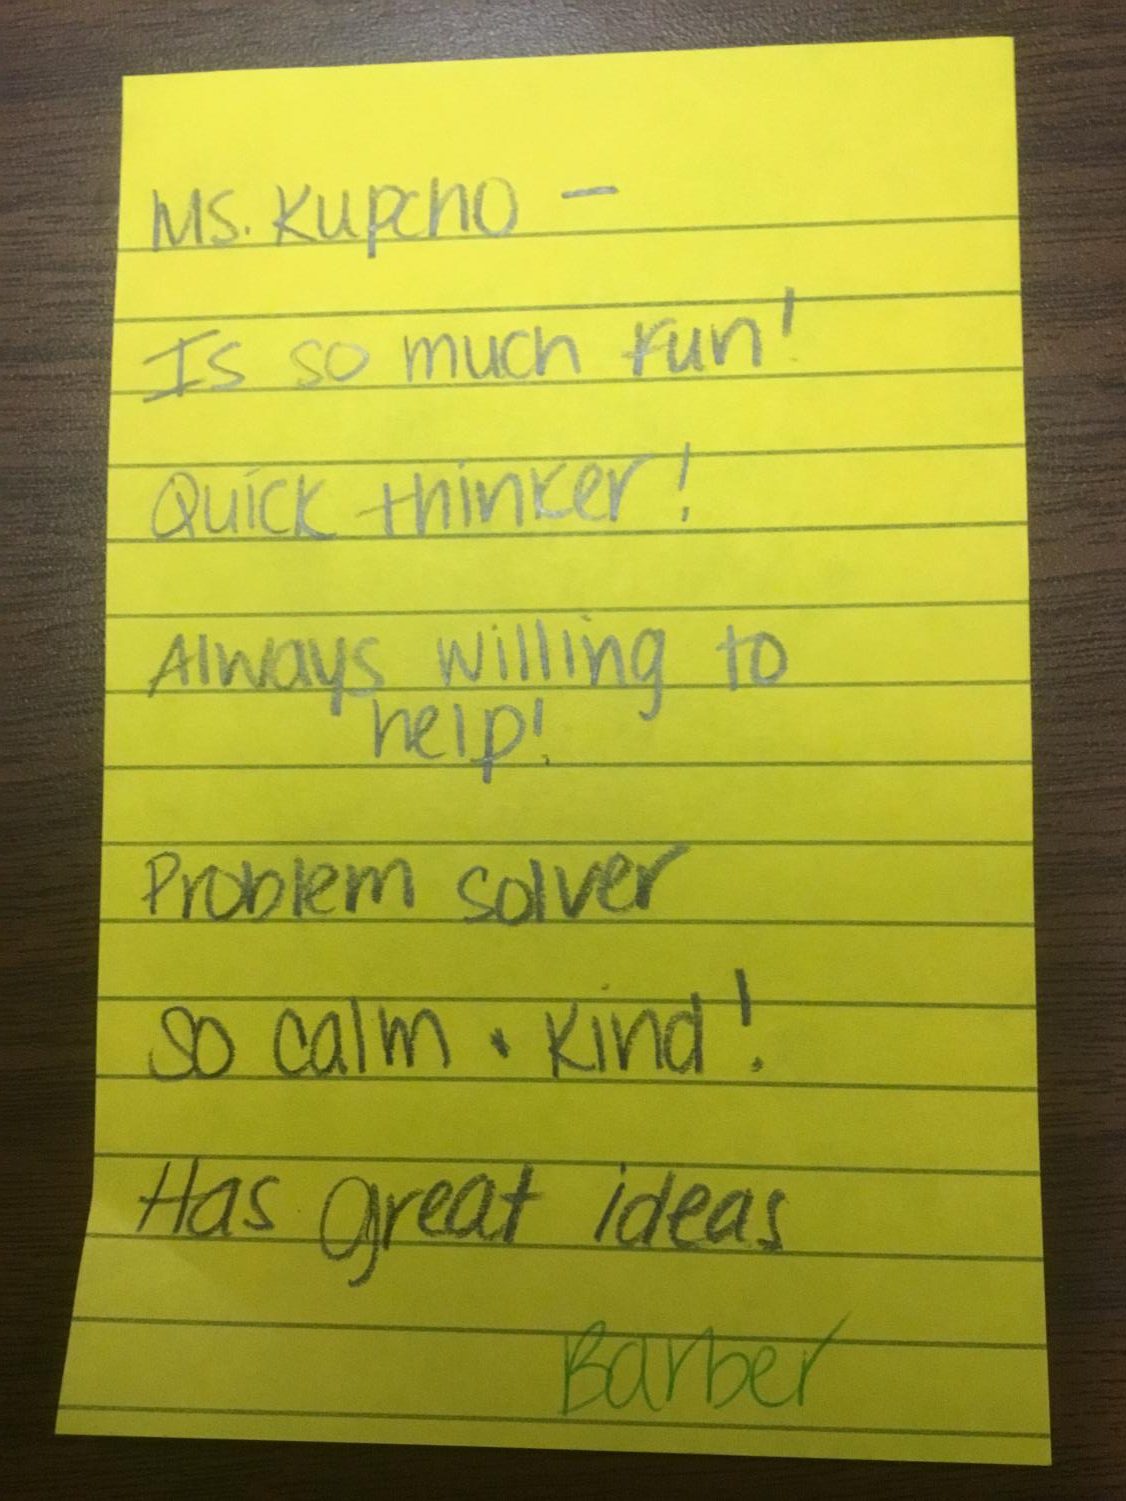 Ms. Kupcho –
Is so much fun!
Quick thinker!
Always willing to
help!
Problem solver
So calm + kind!
Has great ideas
Barber